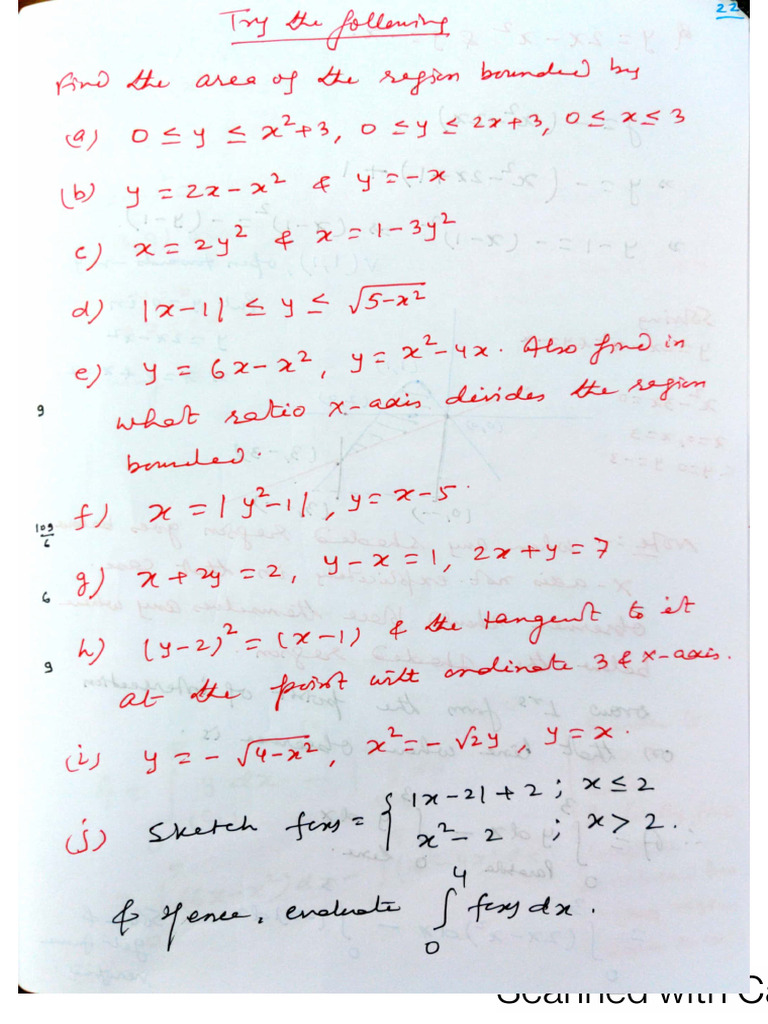 22
Try the following
Find the area of the region bounded by
(a) 0 ≤ y ≤ x²+3, 0 ≤ y ≤ 2x+3, 0 ≤ x ≤ 3
(b) y = 2x - x² & y = -x
c) x = 2y² & x = 1-3y²
d) |x-1| ≤ y ≤ √5-x²
e) y = 6x - x², y = x²-4x. Also find in
9 what ratio x-axis divides the region
bounded.
f) x = |y²-1|, y = x-5
109/6
g) x + 2y = 2, y - x = 1, 2x + y = 7
6
h) (y-2)² = (x-1) & the tangent to it
9 at the point with ordinate 3 & x-axis.
(i) y = - √4-x², x² = - √2y, y = x.
(j) Sketch f(x) = { |x-2|+2 ; x ≤ 2
x²-2 ; x > 2.
& Hence, evaluate ∫₀⁴ f(x) dx.